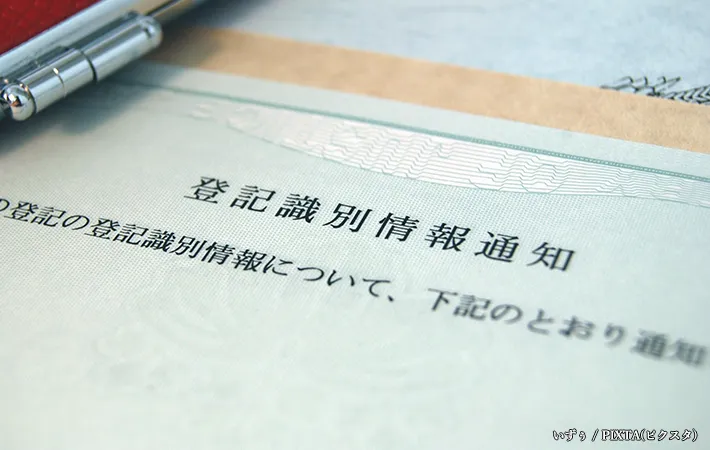 登記識別情報通知
の登記の登記識別情報について、下記のとおり通知
いずぅ / PIXTA(ピクスタ)